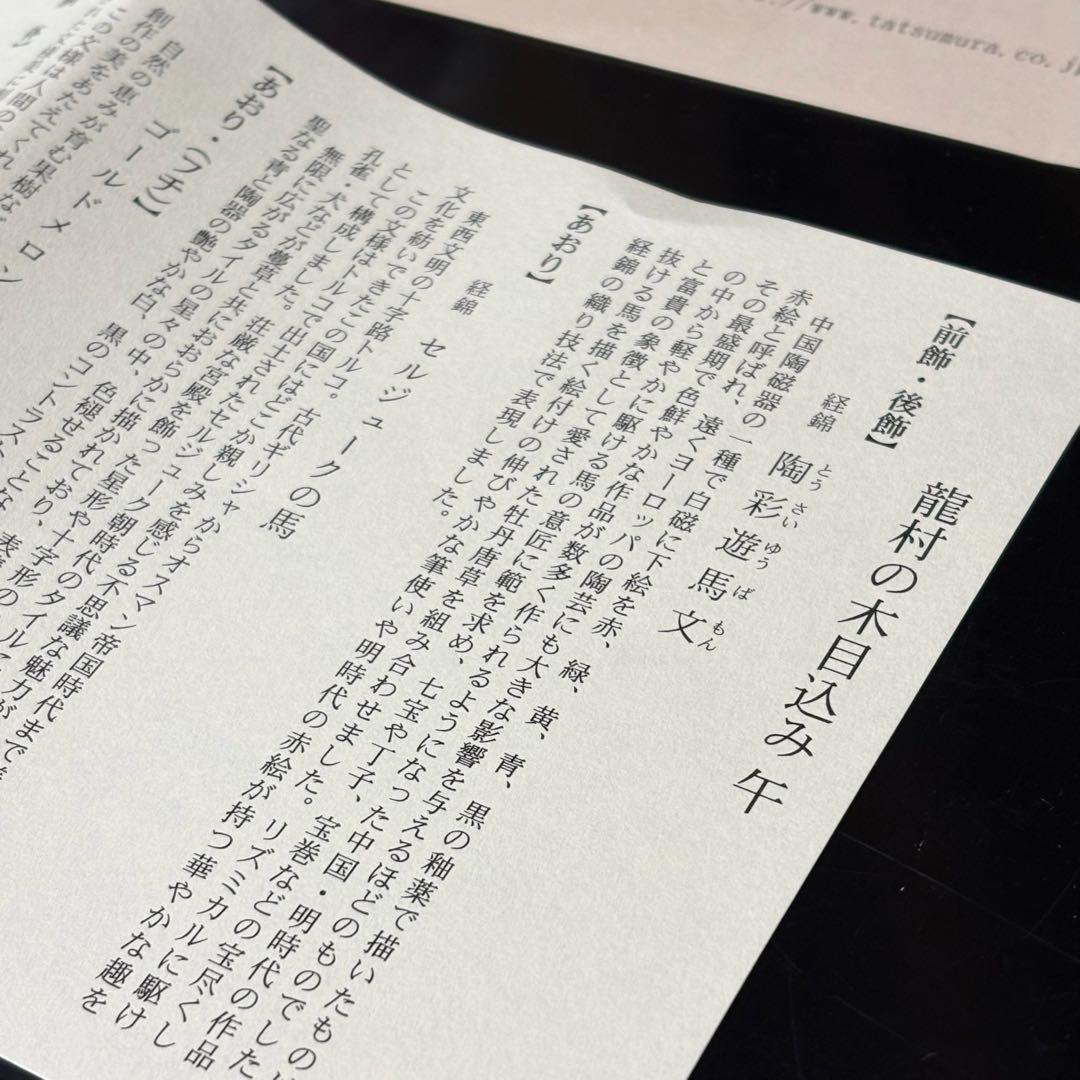 ://www.tatsumura.co.j
龍村の木目込み 午
【前飾・後飾】
経錦 陶彩遊馬文
とうさいゆうばもん
中国陶磁器の一種で白磁に下絵を赤、緑、黄、青、黒の釉薬で描いたもの
赤絵と呼ばれ、遠くヨーロッパの陶芸にも大きな影響を与えるほどのものでした
その最盛期で色鮮やかな作品が数多く作られるようになった中国・明時代の作品
の中から軽やかに駆ける馬の意匠に範を求め、七宝や丁子、宝巻などの宝尽くし
と富貴の象徴として愛された牡丹唐草を組み合わせました。リズミカルに駆け
抜ける馬を描く絵付けの伸びやかな筆使いや明時代の赤絵が持つ華やかな趣を
経錦の織り技法で表現しました。
【あおり】
経錦 セルジュークの馬
東西文明の十字路トルコ。古代ギリシャからオスマン帝国時代まで
文化を紡いできたこの国にはどこか親しみを感じる不思議な魅力が
この文様はトルコで出土したセルジューク朝時代の
として構成しました。荘厳な宮殿を飾った星形や十字形のタイルに
孔雀・犬などが蔓草と共におおらかに描かれており、表
無限に広がるタイルの星々の中、色褪せることな
聖なる青と陶器の艶やかな白、黒のコントラスト
【あおり・(フチ)】
ゴールドメロン
自然の恵みが育む果樹な
創作の美をあたえてくれ
この文様は人間の